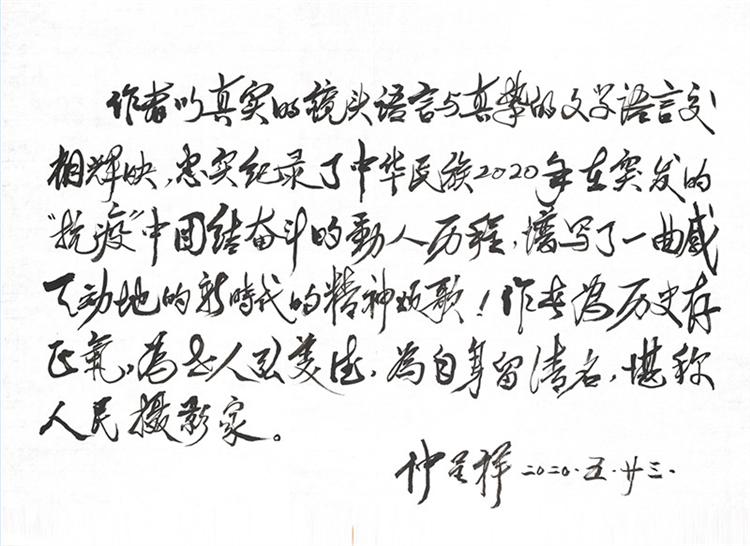 作者以真实的镜头语言与真挚的文学语言交
相辉映，忠实纪录了中华民族2020年在突发的
“抗疫”中团结奋斗的動人历程，谱写了一曲感
天动地的新時代的精神颂歌！作者为历史存
正氣，为世人弘美德，为自身留清名，堪称
人民摄影家。
仲呈祥 二〇二〇.五.廿三.